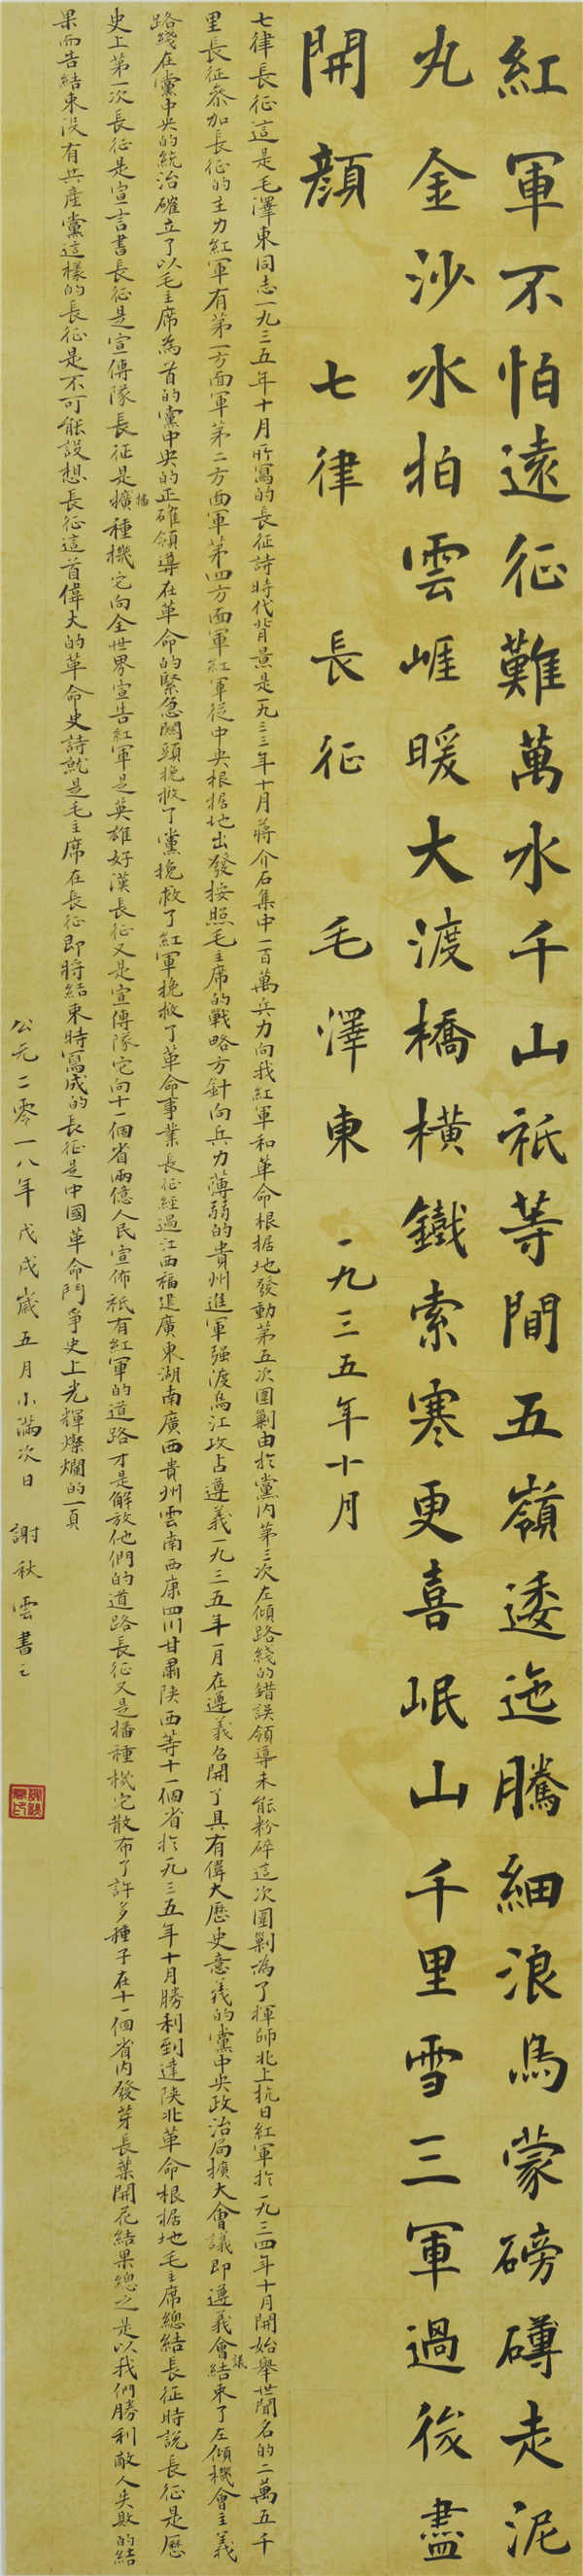 紅軍不怕遠征難萬水千山祇等閒五嶺逶迤騰細浪烏蒙磅礴走泥
丸金沙水拍雲崕暖大渡橋橫鐵索寒更喜岷山千里雪三軍過後盡
開顏 七律 長征 毛澤東 一九三五年十月
七律長征這是毛澤東同志一九三五年十月所寫的長征詩時代背景是一九三三年十月蔣介石集中一百萬兵力向我紅軍和革命根据地發動第五次圍剿由於黨內第三次左傾路綫的錯誤領導未能粉碎這次圍剿為了揮師北上抗日紅軍於一九三四年十月開始舉世聞名的二萬五千
里長征參加長征的主力紅軍有第一方面軍第二方面軍第四方面軍紅軍從中央根据地出發按照毛主席的戰略方針向兵力薄弱的貴州進軍强渡烏江攻占遵義一九三五年一月在遵義召開了具有偉大歷史意義的黨中央政治局擴大會議即遵義會議結束了左傾機會主義
路綫在黨中央的統治確立了以毛主席為首的黨中央的正確領導在革命的緊急關頭挽救了黨挽救了紅軍挽救了革命事業長征經過江西福建廣東湖南廣西貴州雲南西康四川甘肅陝西等十一個省於一九三五年十月勝利到達陝北革命根据地毛主席總結長征時說長征是歷
史上第一次長征是宣言書長征是宣傳隊長征是播種機它向全世界宣告紅軍是英雄好漢長征又是宣傳隊它向十一個省兩億人民宣佈祇有紅軍的道路才是解放他們的道路長征又是播種機它散布了許多種子在十一個省內發芽長葉開花結果總之是以我們勝利敵人失敗的結
果而告結束沒有共產黨這樣的長征是不可能設想長征這首偉大的革命史詩就是毛主席在長征即將結束時寫成的長征是中國革命鬥爭史上光輝燦爛的一頁
公元二零一八年戊戌歲五月小滿次日 謝秋雲書之